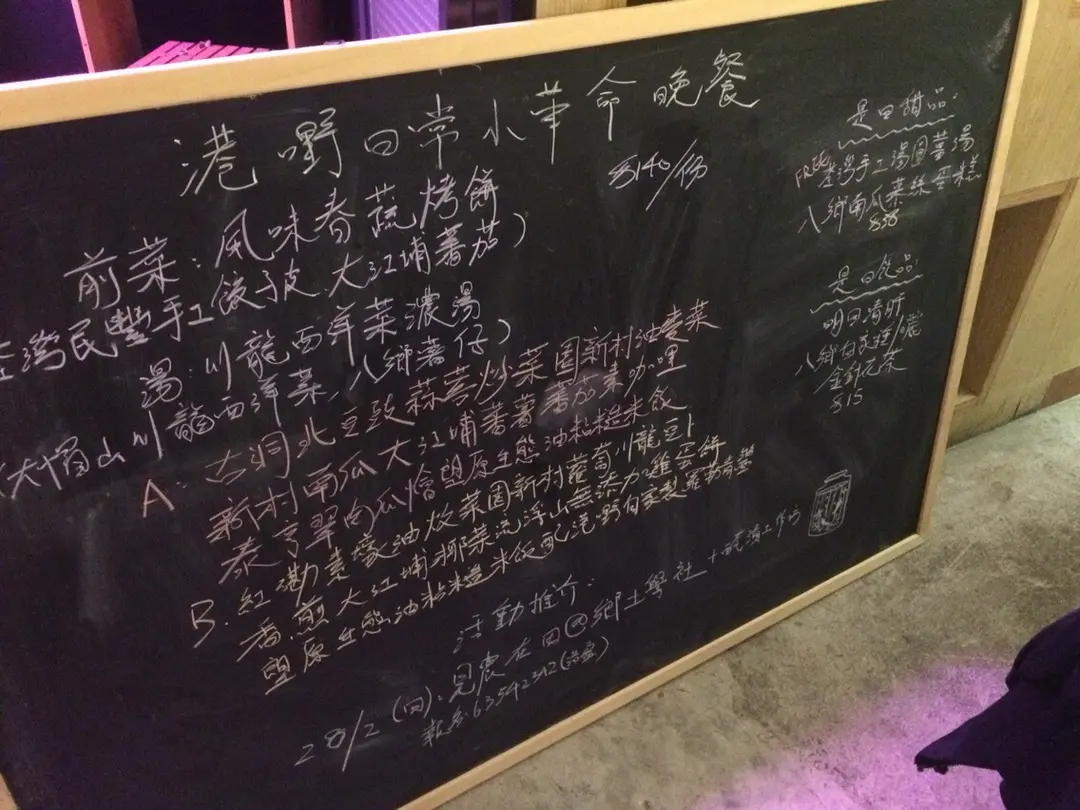 港嘢日常小革命晚餐
$140/份
前菜:風味春蔬烤餅
荃灣民豐手工餃子皮 大江埔蕃茄)
湯:川龍西洋菜濃湯
(大帽山川龍西洋菜,八鄉薯仔)
A:古洞北豆豉蒜蓉炒菜園新村油麥菜
新村南瓜大江埔蕃薯番茄素咖哩
泰亨翠肉瓜 塱原生態油粘糙米飯
B.紅 素蠔油炆菜園新村蘿蔔川龍豆卜
香煎大江埔椰菜流浮山無添加雞蛋餅
塱原生態油粘糙米飯配港嘢自家製
活動推介:
28/2(日):見農在田@鄉土學社+ 工作坊
報名:63542342
是日甜品:
FREE 荃灣手工湯圓薑湯
八鄉南瓜菜絲蛋糕
$38
是日飲品:
八鄉
金針花茶
$15